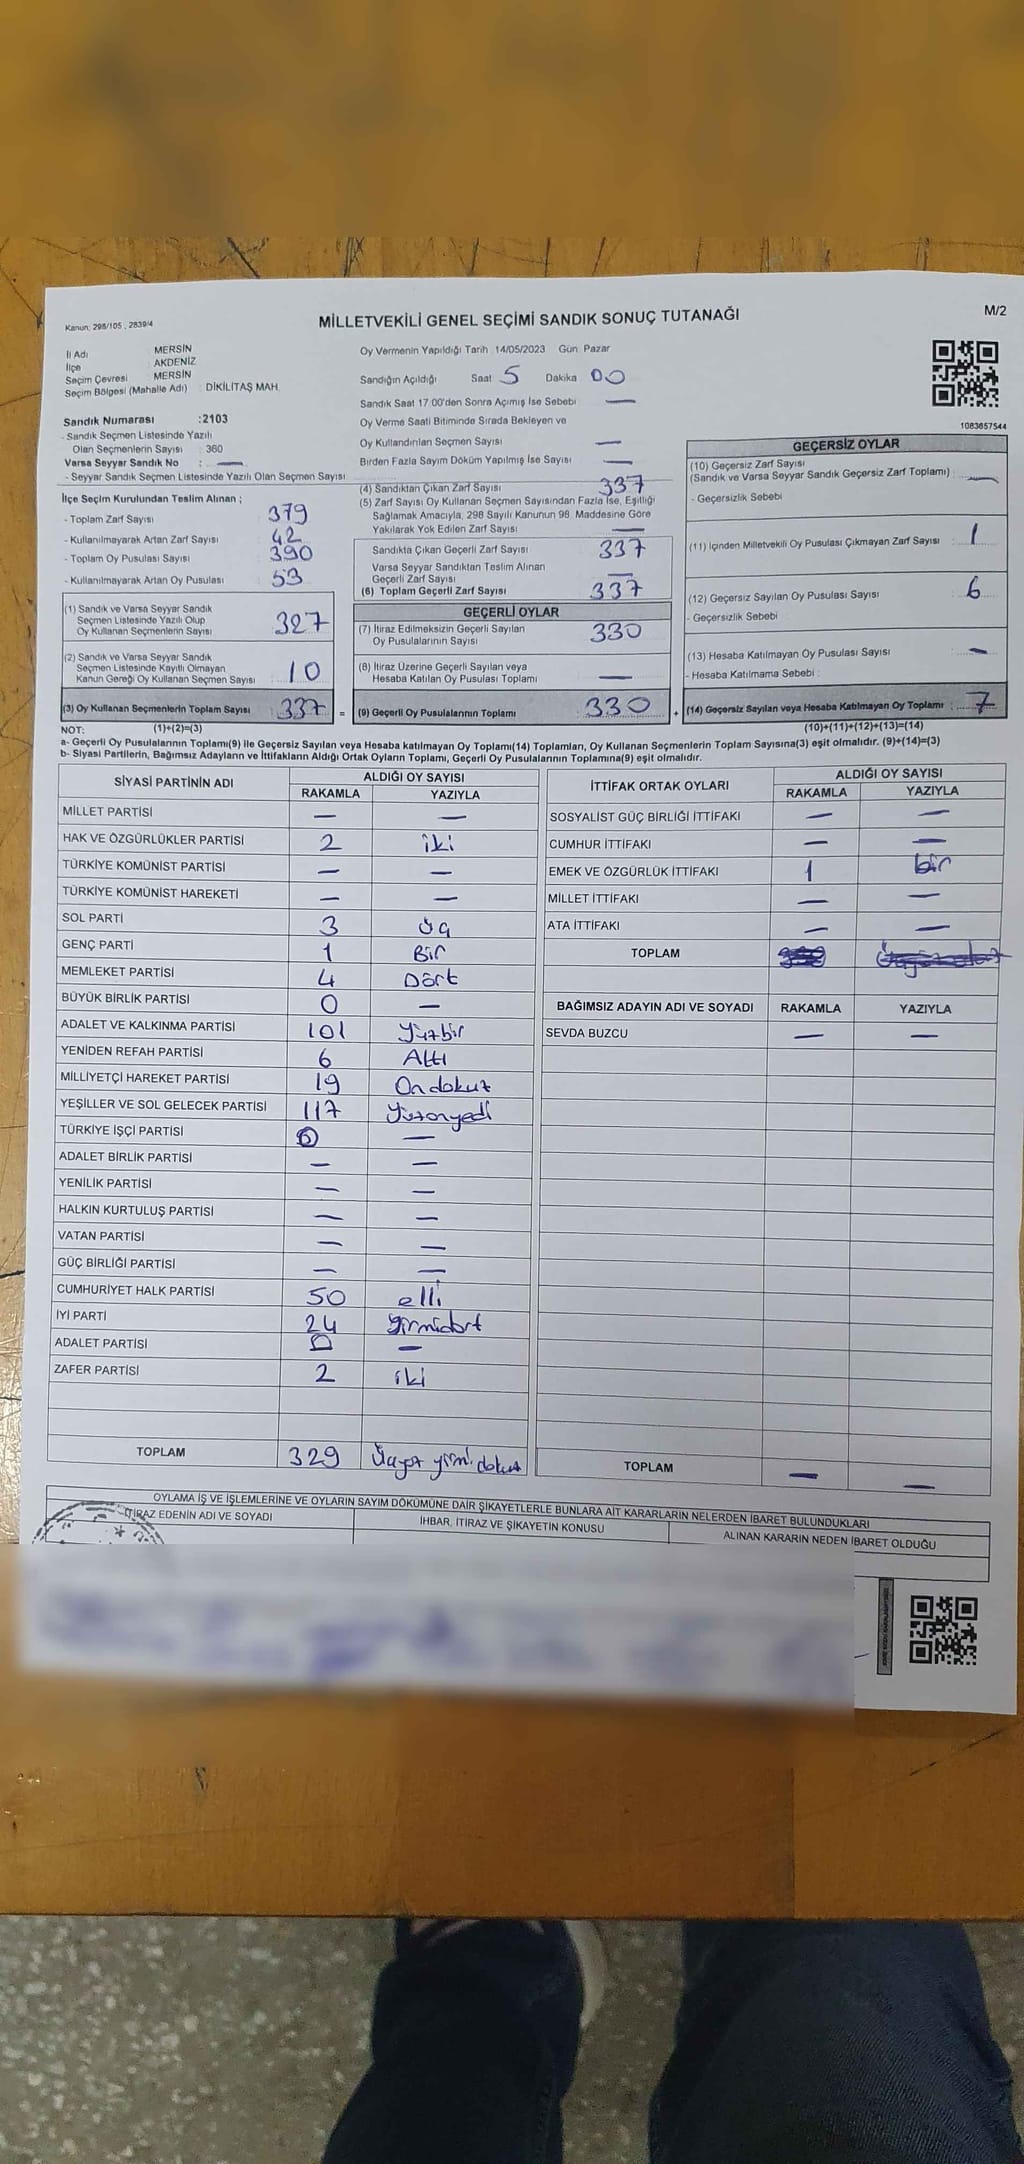 Kanun: 298/105 , 2839/4
MİLLETVEKİLİ GENEL SEÇİMİ SANDIK SONUÇ TUTANAĞI
M/2
İl Adı MERSİN
İlçe AKDENİZ
Seçim Çevresi MERSİN
Seçim Bölgesi (Mahalle Adı) DİKİLİTAŞ MAH.
Sandık Numarası :2103
- Sandık Seçmen Listesinde Yazılı
Olan Seçmenlerin Sayısı : 360
Varsa Seyyar Sandık No : —
- Seyyar Sandık Seçmen Listesinde Yazılı Olan Seçmen Sayısı
İlçe Seçim Kurulundan Teslim Alınan ;
- Toplam Zarf Sayısı 379
- Kullanılmayarak Artan Zarf Sayısı : 42
- Toplam Oy Pusulası Sayısı : 390
- Kullanılmayarak Artan Oy Pusulası : 53
(1) Sandık ve Varsa Seyyar Sandık
Seçmen Listesinde Yazılı Olup
Oy Kullanan Seçmenlerin Sayısı : 327
(2) Sandık ve Varsa Seyyar Sandık
Seçmen Listesinde Kayıtlı Olmayan
Kanun Gereği Oy Kullanan Seçmen Sayısı : 10
(3) Oy Kullanan Seçmenlerin Toplam Sayısı : 337
Oy Vermenin Yapıldığı Tarih :14/05/2023 Gün: Pazar
Sandığın Açıldığı Saat 5 Dakika 00
Sandık Saat 17:00'den Sonra Açımış İse Sebebi —
Oy Verme Saati Bitiminde Sırada Bekleyen ve
Oy Kullandırılan Seçmen Sayısı —
Birden Fazla Sayım Döküm Yapılmış İse Sayısı —
(4) Sandıktan Çıkan Zarf Sayısı 337
(5) Zarf Sayısı Oy Kullanan Seçmen Sayısından Fazla İse, Eşitliği
Sağlamak Amacıyla, 298 Sayılı Kanunun 98. Maddesine Göre
Yakılarak Yok Edilen Zarf Sayısı —
Sandıkta Çıkan Geçerli Zarf Sayısı 337
Varsa Seyyar Sandıktan Teslim Alınan
Geçerli Zarf Sayısı —
(6) Toplam Geçerli Zarf Sayısı 337
GEÇERLİ OYLAR
(7) İtiraz Edilmeksizin Geçerli Sayılan
Oy Pusulalarının Sayısı 330
(8) İtiraz Üzerine Geçerli Sayılan veya
Hesaba Katılan Oy Pusulası Toplamı —
= (9) Geçerli Oy Pusulalarının Toplamı 330 +
1083657544
GEÇERSİZ OYLAR
(10) Geçersiz Zarf Sayısı
(Sandık ve Varsa Seyyar Sandık Geçersiz Zarf Toplamı) : —
- Geçersizlik Sebebi
(11) İçinden Milletvekili Oy Pusulası Çıkmayan Zarf Sayısı : 1
(12) Geçersiz Sayılan Oy Pusulası Sayısı : 6
- Geçersizlik Sebebi
(13) Hesaba Katılmayan Oy Pusulası Sayısı : —
- Hesaba Katılmama Sebebi :
(14) Geçersiz Sayılan veya Hesaba Katılmayan Oy Toplamı : 7
NOT: (1)+(2)=(3) (10)+(11)+(12)+(13)=(14)
a- Geçerli Oy Pusulalarının Toplamı(9) ile Geçersiz Sayılan veya Hesaba katılmayan Oy Toplamı(14) Toplamları, Oy Kullanan Seçmenlerin Toplam Sayısına(3) eşit olmalıdır. (9)+(14)=(3)
b- Siyasi Partilerin, Bağımsız Adayların ve İttifakların Aldığı Ortak Oyların Toplamı, Geçerli Oy Pusulalarının Toplamına(9) eşit olmalıdır.
SİYASİ PARTİNİN ADI ALDIĞI OY SAYISI
RAKAMLA YAZIYLA
MİLLET PARTİSİ — —
HAK VE ÖZGÜRLÜKLER PARTİSİ 2 iki
TÜRKİYE KOMÜNİST PARTİSİ — —
TÜRKİYE KOMÜNİST HAREKETİ — —
SOL PARTİ 3 üç
GENÇ PARTİ 1 Bir
MEMLEKET PARTİSİ 4 Dört
BÜYÜK BİRLİK PARTİSİ 0 —
ADALET VE KALKINMA PARTİSİ 101 Yüzbir
YENİDEN REFAH PARTİSİ 6 Altı
MİLLİYETÇİ HAREKET PARTİSİ 19 Ondokuz
YEŞİLLER VE SOL GELECEK PARTİSİ 117 Yüzonyedi
TÜRKİYE İŞÇİ PARTİSİ 0 —
ADALET BİRLİK PARTİSİ — —
YENİLİK PARTİSİ — —
HALKIN KURTULUŞ PARTİSİ — —
VATAN PARTİSİ — —
GÜÇ BİRLİĞİ PARTİSİ — —
CUMHURİYET HALK PARTİSİ 50 elli
İYİ PARTİ 24 Yirmidört
ADALET PARTİSİ 0 —
ZAFER PARTİSİ 2 iki
TOPLAM 329 Üçyüz yirmi dokuz
İTTİFAK ORTAK OYLARI ALDIĞI OY SAYISI
RAKAMLA YAZIYLA
SOSYALİST GÜÇ BİRLİĞİ İTTİFAKI — —
CUMHUR İTTİFAKI — —
EMEK VE ÖZGÜRLÜK İTTİFAKI 1 bir
MİLLET İTTİFAKI — —
ATA İTTİFAKI — —
TOPLAM
BAĞIMSIZ ADAYIN ADI VE SOYADI RAKAMLA YAZIYLA
SEVDA BUZCU — —
TOPLAM — —
OYLAMA İŞ VE İŞLEMLERİNE VE OYLARIN SAYIM DÖKÜMÜNE DAİR ŞİKAYETLERLE BUNLARA AİT KARARLARIN NELERDEN İBARET BULUNDUKLARI
İTİRAZ EDENİN ADI VE SOYADI İHBAR, İTİRAZ VE ŞİKAYETİN KONUSU ALINAN KARARIN NEDEN İBARET OLDUĞU